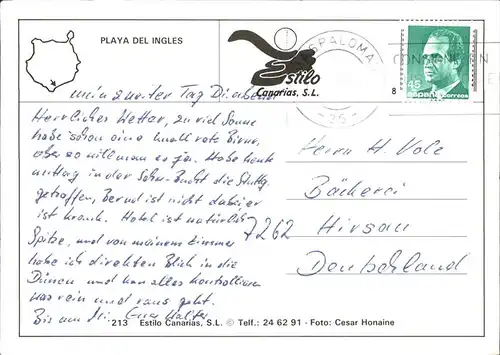 PLAYA DEL INGLES
Estilo
Canarias, S.L.
8
45
España correos
mein zweiter Tag Di abend
Herrliches Wetter, zu viel Sonne
habe schon eine knall rote Birne,
aber so will man es ja. Habe heute
mittag in der Bucht die
getroffen, Bernd ist nicht dabei, er
ist krank. Hotel ist natürlich
Spitze, und von meinem Zimmer
habe ich direkten Blick in die
Dünen und kann alles kontrollieren
was rein und raus geht.
Bis am Euer Walter
Herrn H. Volc
Bäckerei
7262 Hirsau
Deutschland
213 Estilo Canarias, S.L. © Telf.: 24 62 91 - Foto: Cesar Honaine